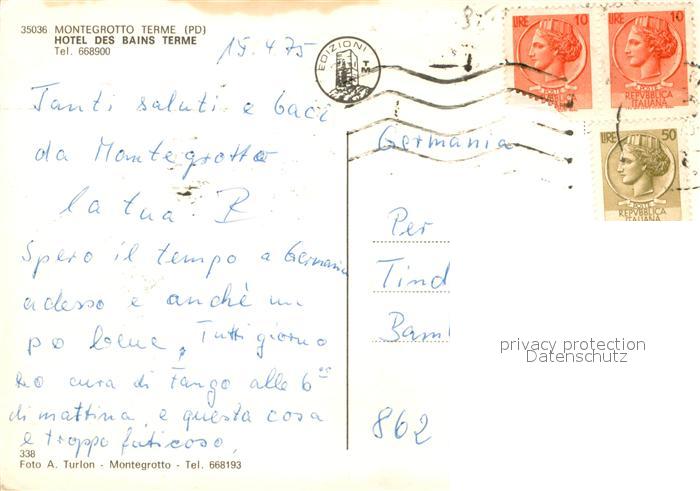 35036 MONTEGROTTO TERME (PD)
HOTEL DES BAINS TERME
Tel. 668900
15.4.75
EDIZIONI
TM
LIRE 10
POSTE
REPVBBLICA
ITALIANA
LIRE 10
POSTE
REPVBBLICA
ITALIANA
LIRE 50
POSTE
REPVBBLICA
ITALIANA
Tanti saluti e baci
da Montegrotto
la tua R
Spero il tempo a Germania
adesso e anche un
po bene, Tutti giorno
cura di Fango alle 6
di mattina, e questa cosa
e troppo faticoso,
Germania
Per
Tind
Bam
862
privacy protection
Datenschutz
338
Foto A. Turlon - Montegrotto - Tel. 668193